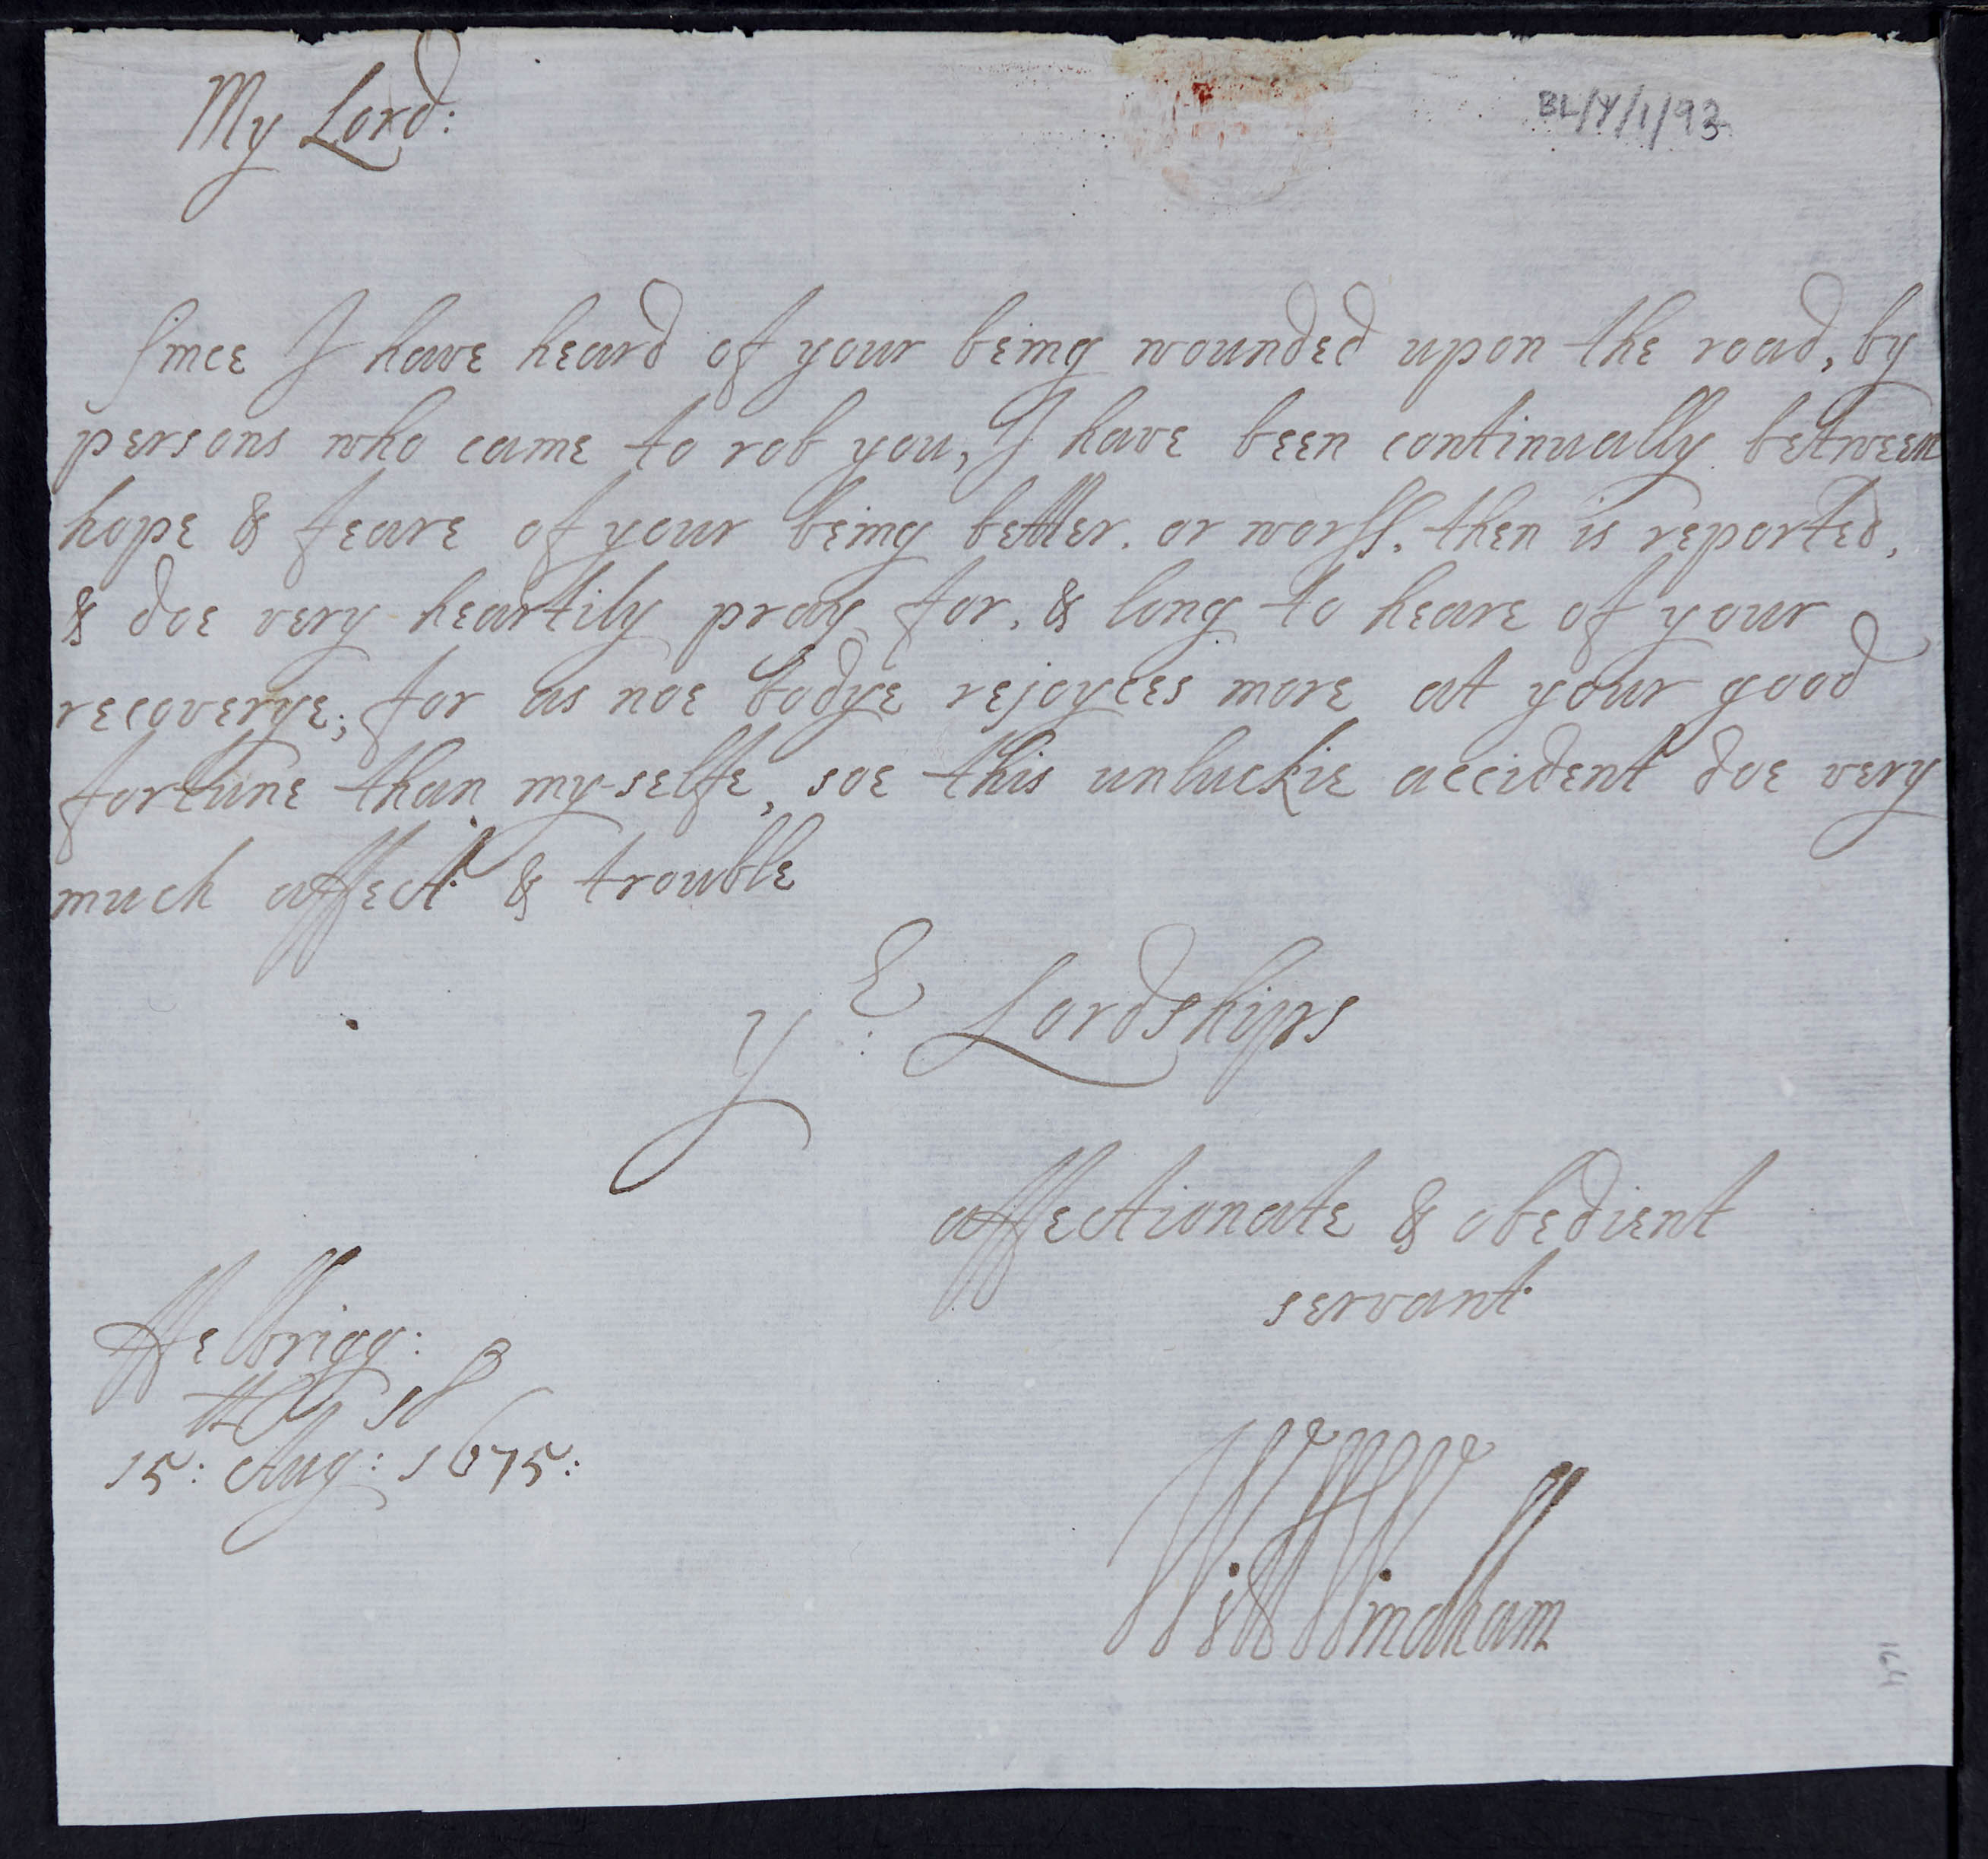 My Lord:
BL/Y/1/93
Since I have heard of your being wounded upon the road, by
persons who came to rob you, I have been continually between
hope & feare of your being better. or worss. then is reported,
& doe very heartily pray for, & long to heare of your
recoverye; for as noe bodye rejoyces more at your good
fortune than my-selfe, soe this unluckie accident doe very
much affect & trouble
yE: Lordships
affectionate & obedient
servant
Felbrigg:
15: Aug: 1675:
Will Windham
164